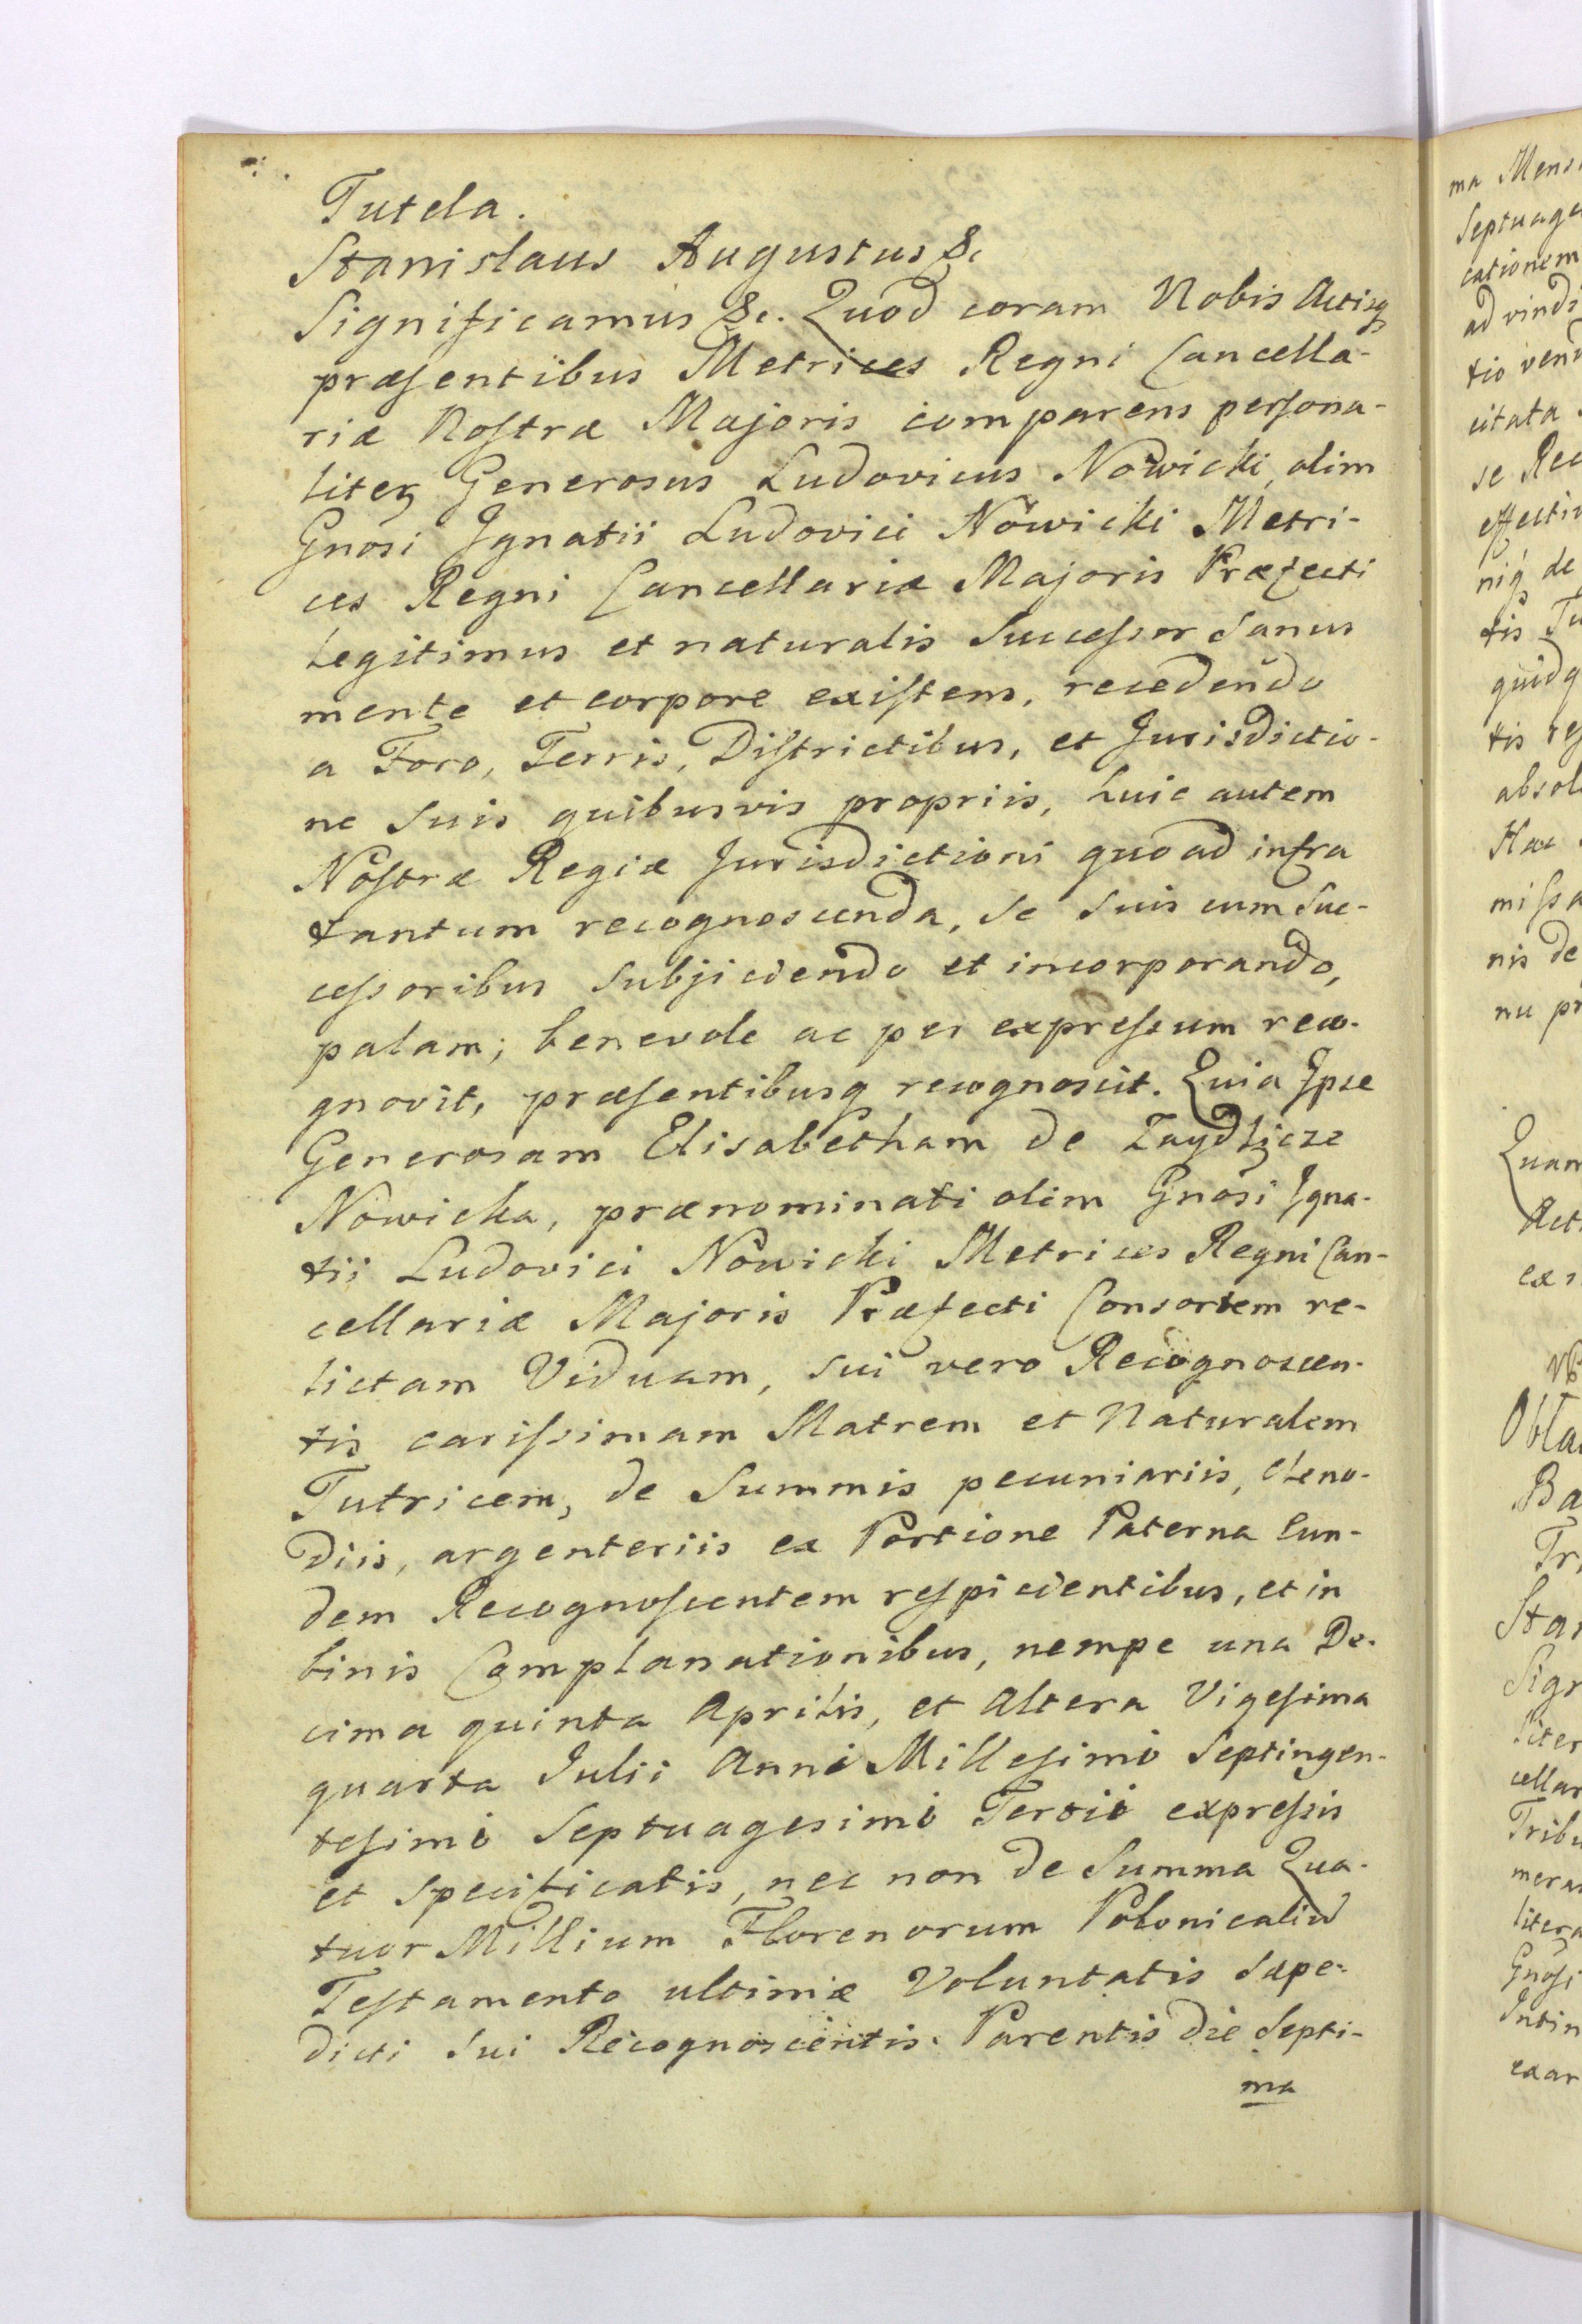 Tutela.
Stanislaus Augustus &c.
Significamus &c. Quod coram Nobis Actisq
præsentibus Metrices Regni Cancella-
riæ Nostræ Majoris comparens persona-
liter Generosus Ludovicus Nowicki, olim
Gnosi Ignatii Ludovici Nowicki Metri-
ces Regni Cancellariæ Majoris Præfecti
Legitimus et naturalis Successor Sanus
mente et corpore existens, recedendo
a Foro, Terris, Districtibus, et Jurisdictio-
ne Suis quibusvis propriis, huic autem
Nostræ Regiæ Jurisdictioni quoad infra
tantum recognoscenda, Se Suis cum Suc-
cessoribus Subjiciendo et incorporando,
palam; benevole ac per expressum reco-
gnovit, præsentibusq recognoscit. Quia Ipse
Generosam Elisabetham de Zaydlicze
Nowicka, prænominati olim Gnosi Igna-
tii Ludovici Nowicki Metrices Regni Can-
cellariæ Majoris Præfecti Consortem re-
lictam Viduam, sui vero Recognoscen-
tis carissimam Matrem et Naturalem
Tutricem, de Summis pecuniariis, Cleno-
diis, argenteriis ex Portione Paterna Eun-
dem Recognoscentem respicientibus, et in
binis Complanationibus, nempe una De-
cima quinta Aprilis, et Altera Vigesima
quarta Julii Anni Millesimi Septingen-
tesimi Septuagesimi Tertii expressis
et specificatis, nec non de Summa Qua-
tuor Millium Florenorum Polonicaliu
Testamento ultimæ Voluntatis Sæpe-
dicti Sui Recognoscentis Parentis die Septi-
ma
ma
Septuage
cationem
ad vindi
tio
citata
se Rec
nis de
tis Tu
quidq
tis
absol
Hac
missa
nis de
nu pr
Quam
Act
ex
Obla
Ba
Tr
Sta
Sign
liter
cellar
Tribu
litera
Gnosi